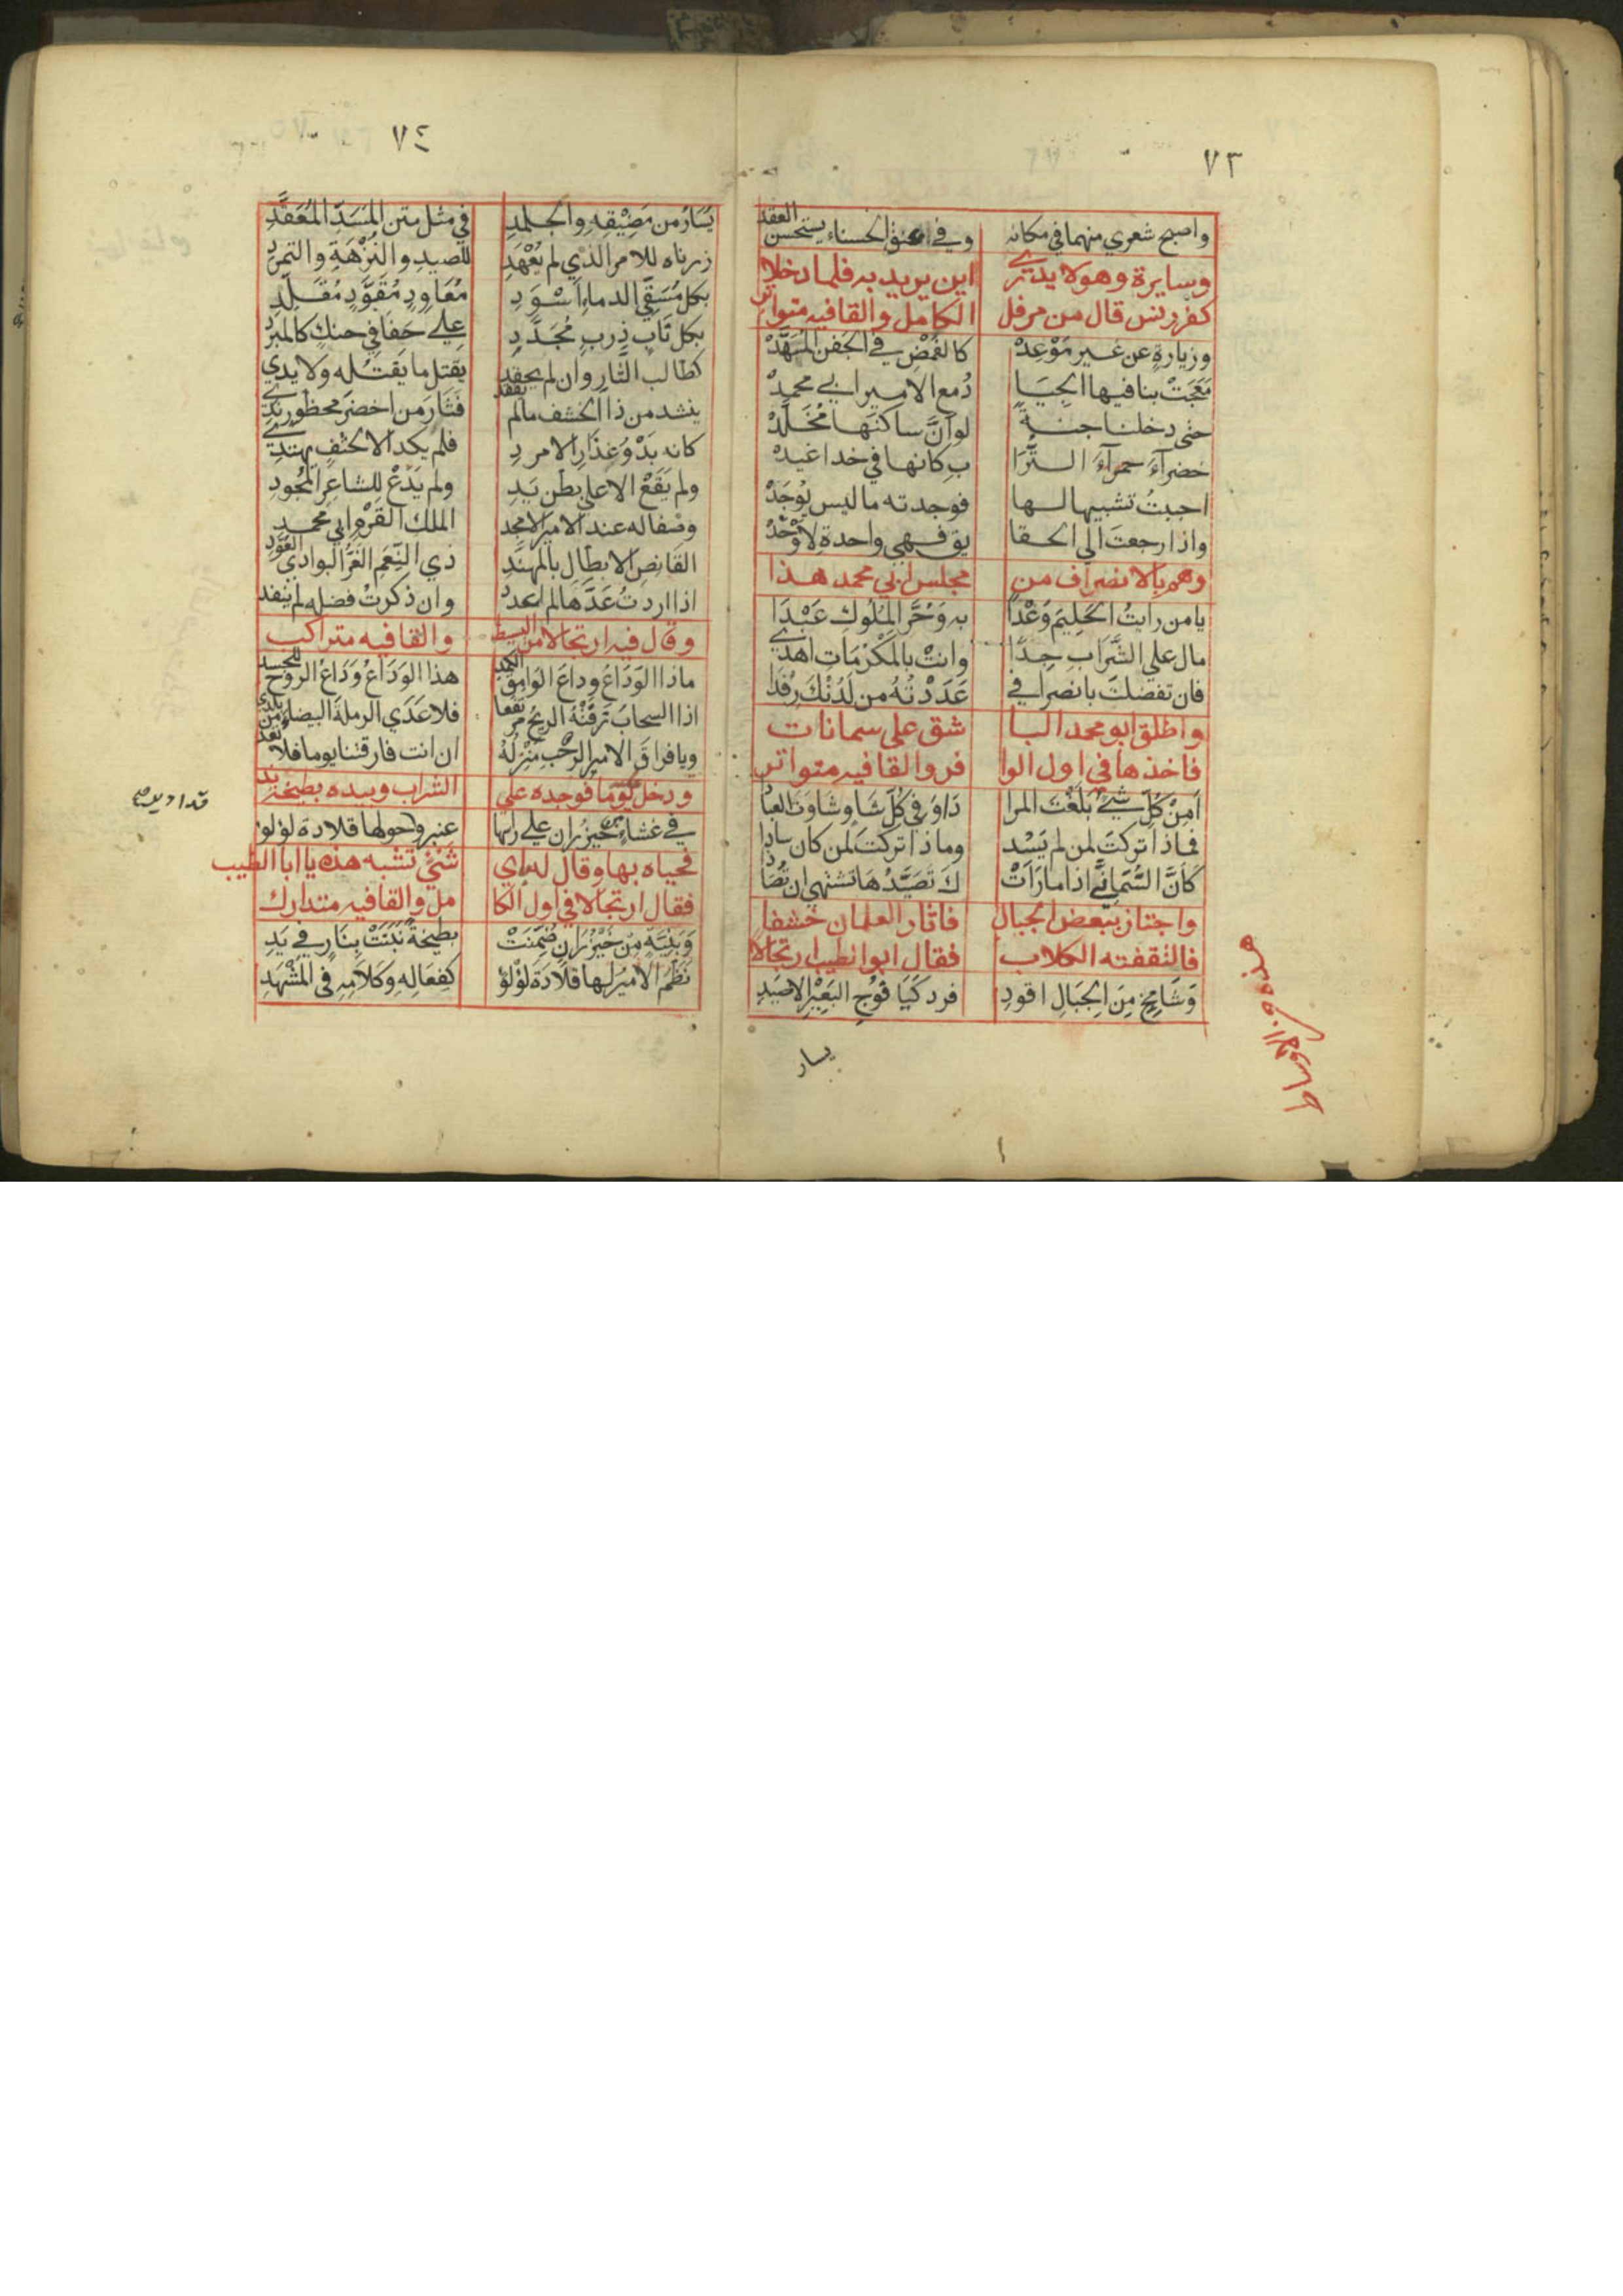 ٧٣
واصبح شعري منهما في مكانه وفي عنق الحسناء يستحسن العقد
وسايرة وهو لا يدري اين يريد به فلما دخلا
كفرديس قال من مرفل الكامل والقافيه متواتر
وزيارةٍ عن غير مَوْعِدْ كالغُمْضِ في الجَفن المُسَهَّدْ
مَعَجَتْ بنا فيها الجيَا دُ مع الامير ابي محمدْ
حتى دخلنا جنةً لو انَّ ساكنَها مُخَلَّدْ
خضراءَ حمراءَ التُّرَا بِ كانها في خد اغيدْ
احببتُ تشبيها لها فوجدته ما ليس يُوجَدْ
واذا رجعتَ الي الحقا يق فهي واحدة لاَوْحَدْ
وهم بالانصراف من مجلس ابي محمد هذا
يا من رايتُ الحَلِيمَ وَغْدًا به وَحُرَّ المُلُوكِ عَبْدَا
مال علي الشَّرَابِ جِدًّا وانتْ بالمَكْرُمَاتِ اهدي
فان تفضلتَ بانصرافي عَدَدْتُهُ من لَدُنْكَ رِفْدَا
واطلق ابو محمد البا شق على سمانات
فاخذها في اول الوا فر والقافيه متواتر
اَمِنْ كُلِّ شيءٍ بَلَغْتَ المرا دَاوَ في كُلِّ شَاوٍ شَاوتَ العبَا
فماذا تركتَ لمن لم يَسُد وماذا تركتَ لمن كان سادا
كَاَنَّ السُّمَانَي اذا ما رَاَتْ كَ تَصَيَّدُهَا تشتهي ان تُصَا
واجتاز ببعض الجبال فاثار الغلمان خشفا
فالتقفته الكلاب فقال ابو الطيب ارتجالا
وَشَامِخٍ مِنَ الجِبَالِ اقودِ فرد كَيَا فُوْخِ البَعِيْرِ الاصْيَدِ
يسار
٧٤
يُسَارُ من مَضِيْقِهِ والجلمدِ في مثل متن المَسَدِ المُعَقَّدِ
زرناه للامر الذي لم يُعْهَدِ للصيدِ والنُّزْهَةِ والتمرُّدِ
بكل مُسْقَي الدماءِ اَسْوَدِ مُعَاوِدٍ مُقَوَّدٍ مُقَلَّدِ
بكل نَابٍ ذرِبٍ مُجَدَّدِ علي حَفَافي حنكٍ كالمبرد
كطالب الثار وان لم يحقد يقتل ما يَقتُله ولا يدي
ينشد من ذا الخشف ما لم يفقد فَثَارَ من اخضرَ محظورٍ ندي
كانه بَدْوُ عِذَارِ الامردِ فلم يكد الا لحتفٍ يهتدي
ولم يَقَعْ الا علي بطن يَدِ ولم يَدَعْ للشاعرِ المُجُودِ
وصفا له عند الامير الامجد الملك القَرْم ابي محمد
القَانِص الابطال بالمهنَّدِ ذي النِّعَمِ الغُرِّ البوادي العُوَّدِ
اذا اردتُ عَدَّهَا لم اعدد وان ذكرتُ فضله لم ينفد
وقال فيه ارتجالا من البسيط والقافيه متراكب
ماذا الوَدَاعُ وداعَ الوامق الكمد هذا الوَدَاعُ وَدَاعُ الروح للجسد
اذا السحابُ زَفَتْهُ الريحُ مرتفعا فلا عَدَي الرملةَ البيضاء من بلدي
ويا فراقَ الامير الرحْبِ مَنْزِلُهُ ان انت فارقتنا يوما فلا تعد
ودخل يوما فوجده علي الشراب وبيده بطيخة ند
في غشاء من خيزُران علي راسها عنبر وحولها قلادة لولو
فحياه بها وقال له اي شيْءٍ تشبه هذه يا ابا الطيب
فقال ارتجالا في اول الكا مل والقافيه متدارك
وَبَنِيَّةٍ مِن خَيْزُرَانٍ ضُمِّنَتْ بطيخةً نَبَتَتْ بِنَارٍ في يَدِ
نَظَمَ الامِيْرُ لها قلادَة لوْلوٍ كفِعَالِهِ وكَلاَمِهِ في المَشْهَدِ